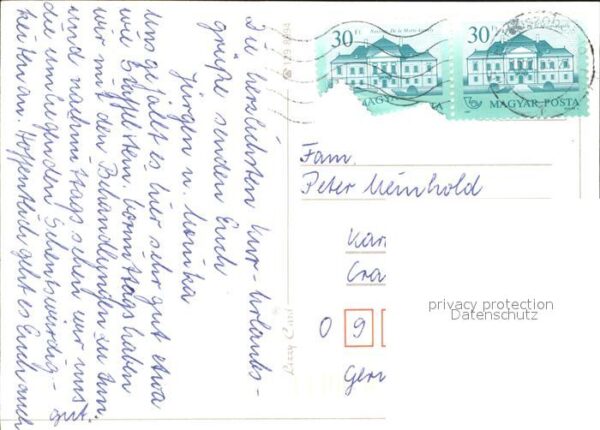 Die herzlichsten Kur-Urlaubs-
grüße senden Euch
Jürgen u. Monika
Uns gefällt es hier sehr gut etwa
wie Ägyptern. Vormittags haben
wir mit den Behandlungen zu tun
und nachmittags sehen wir uns
die umliegenden Sehenswürdig-
keiten an. Hoffentlich geht es Euch auch
gut.
30 Ft
MAGYAR POSTA
30 Ft
MAGYAR POSTA
Fam.
Peter Meinhold
Kar
Cra
0 9
Ger
privacy protection
Datenschutz